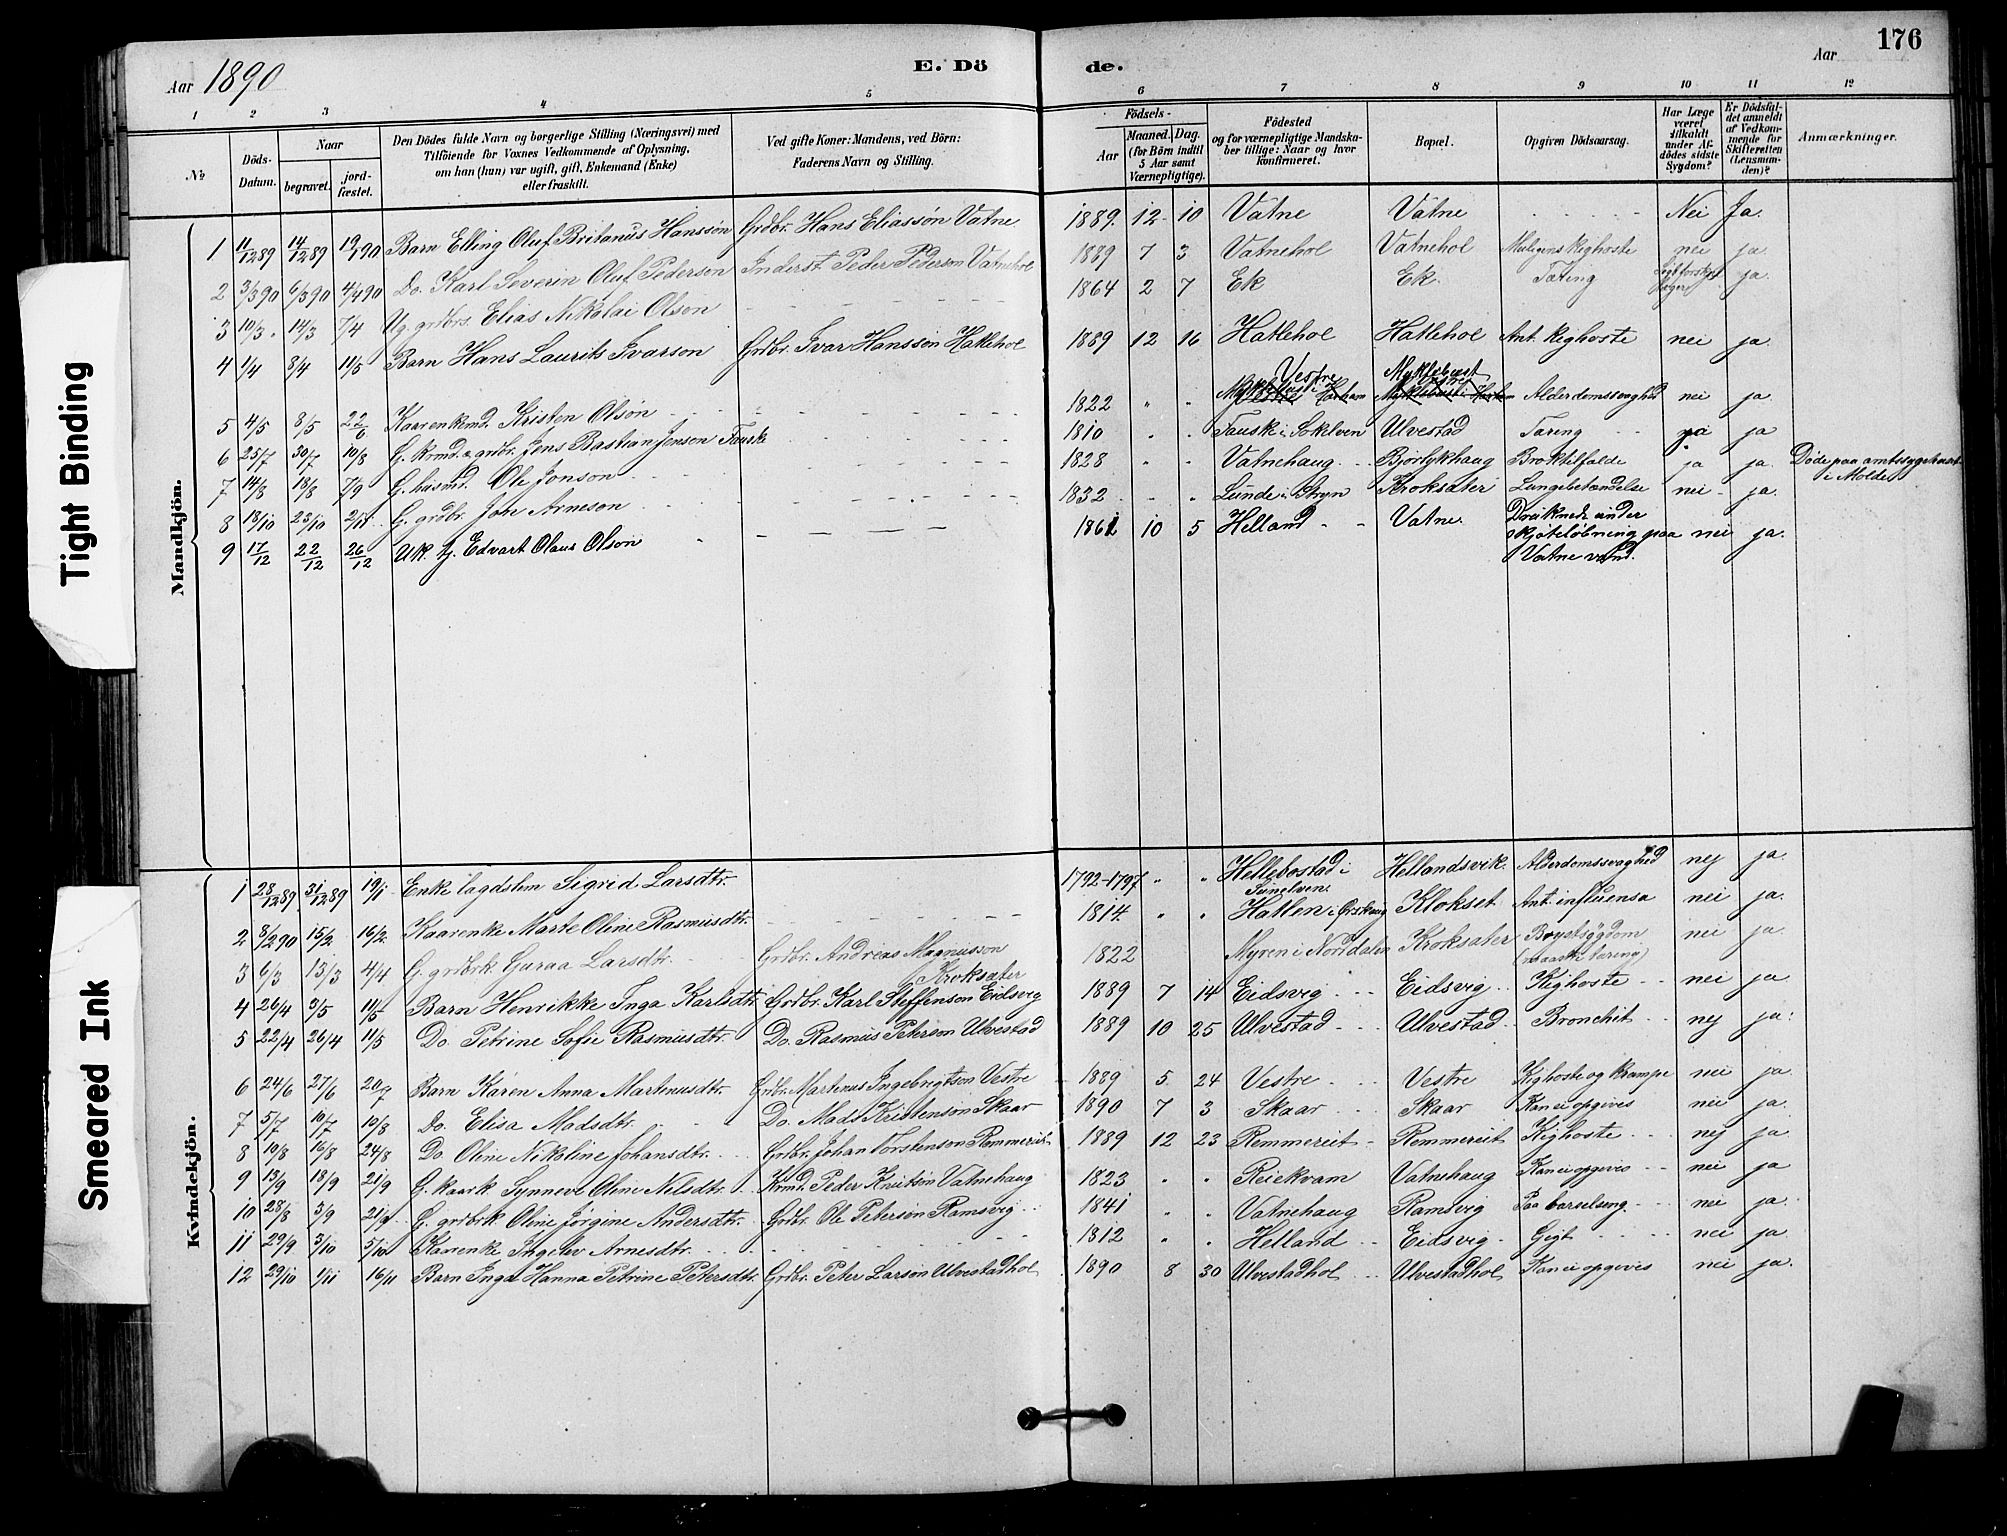 Aar 1890
E. Dö
de.
Aar
176
1 2 3 4 5 6 7 8 9 10 11 12
№
Döds-
Datum.
Naar
begravet.
jord-
fæstet.
Den Dödes fulde Navn og borgerlige Stilling (Næringsvei) med
Tilföiende for Voxnes Vedkommende af Oplysning,
om han (hun) var ugift, gift, Enkemand (Enke)
eller fraskilt.
Ved gifte Koner: Mandens, ved Börn:
Faderens Navn og Stilling.
Födsels-
Aar
Maaned. Dag.
(for Börn indtil
5 Aar samt
Værnepligtige).
Födested
og for værnepligtige Mandska-
ber tillige: Naar og hvor
konfirmeret.
Bopæl.
Opgiven Dödsaarsag.
Har Læge
været
tilkaldt
under Af-
dödes sidste
Sygdom?
Er Dödsfal-
det anmeldt
af Vedkom-
mende for
Skifteretten
(Lensman-
den)?
Anmærkninger.
Tight Binding
Smeared Ink
Mandkjön.
1 11/12 89 14/12 89 19/1 90 Barn Elling Oluf Britanus Hanssön Grdbr. Hans Eliassön Vatne 1889. 12 10 Vatne Vatne Nei Ja.
2 3/3 90 6/3 90 4/4 90 Do. Karl Severin Oluf Pederson Inderst. Peder Pederson Vatnehol 1889 7 3 Vatnehol Vatnehol Muligens Kighoste nei ja.
3 10/3. 14/3 7/4 Ug. grdbrs. Elias Nikolai Olson 1864 2 7 Ek Ek. Tæring ja.
4 1/4 8/4 11/5 Barn Hans Laurits Ivarson Grdbr. Ivar Hanssön Hatlehol 1889 12 16 Hatlehol Hatlehol Ant. Kighoste nei ja.
Vestre Myklebust
5 4/5 8/5 22/6 Kaarenkmd. Kristen Olsön 1822 " " Alderdomssvaghed nei ja.
6 25/7 30/7 10/8 G. krmd. & grdbr. Jens Bastian Jenson Fausk 1810 " " Fausk i Sökelven Ulvestad Tæring ja ja
7 14/8 18/8 7/9 G. husmd. Ole Jonson 1828 " " Vatnehaug Bjorlykhaug Broktilfælde ja ja. Döde paa amtssygehuset
i Molde
8 18/10 23/10 2/11 G. grdbr. Jon Arneson 1832 " " Lunde i Stryn Kroksæter Lungebetændelse nei ja.
9 17/12 22/12 26/12 Uk. g. Edvart Olaus Olson 1861 10 5 Helland Vatne. Druknede under
skjöteløbning paa nei ja.
Vatne vatnd.
Kvindekjön.
1 28/12 89. 31/12 89 19/1 Enke lagdslem Sigrid Larsdtr. 1792-1797 " " Hellebostad i Hellandsvik. Alderdomssvaghed nej ja.
Sunelven.
2 8/2 90 15/2 16/2 Kaarenke Marte Oline Rasmusdtr. 1814. " " Hatlen i Ørskoug Klokset Ant. influensa nei ja.
3 6/3 15/3 4/4 G. grdbrk. Guraa Larsdtr. Grdbr. Andreas Magnusson 1822 Myren i Norddalen Kroksæter Brystsygdom nei ja.
Kroksæter (maaske tæring)
4 26/4 3/5 11/5 Barn Henrikke Inga Karlsdtr. Grdbr. Karl Steffenson Eidsvig 1889 7 14 Eidsvig Eidsvig Kighoste nei ja
5 22/4 26/4 11/5 Do. Petrine Sofie Rasmusdtr. Do. Rasmus Peterson Ulvestad 1889 10 25 Ulvestad Ulvestad Bronchit nej ja.
6 24/6 27/6 20/7 Barn Karen Anna Martinusdtr. Grdbr. Martinus Ingebrigtson Vestre 1889 5 24 Vestre Vestre Kighoste og Krampe nei ja.
7 5/7 10/7 10/8 Do. Elisa Madsdtr. Do. Mads Kristenson Skaar 1890 7 3 Skaar Skaar Kan ei opgives nei ja.
8 10/8 16/8 24/8 Do. Oline Nikoline Johansdtr. Grdbr. Johan Torstenson Remmereit 1889 12 23 Remmereit Remmereit Kighoste nej ja.
9 13/9 18/9 21/9 G. kaark. Synneve Oline Nilsdtr. Krmd. Peder Knutsön Vatnehaug 1823 " " Reiekvam Vatnehaug Kan ei opgives nei ja
10 28/8 3/9 21/9. G. grdbrk. Oline Jörgine Andersdtr. Grdbr. Ole Petersön Ramsvig 1841 " " Vatnehaug Ramsvig Paa barselseng nei ja.
11 29/9 3/10 5/10 Kaarenke Ingelev Arnesdtr. 1812 " " Helland Eidsvig Gigt nei ja.
12 29/10 1/11 16/11 Barn Inga Hanna Petrine Petersdtr. Grdbr. Peter Larson Ulvestadhol 1890 8 30 Ulvestadhol Ulvestadhol Kan ei opgives nei ja.